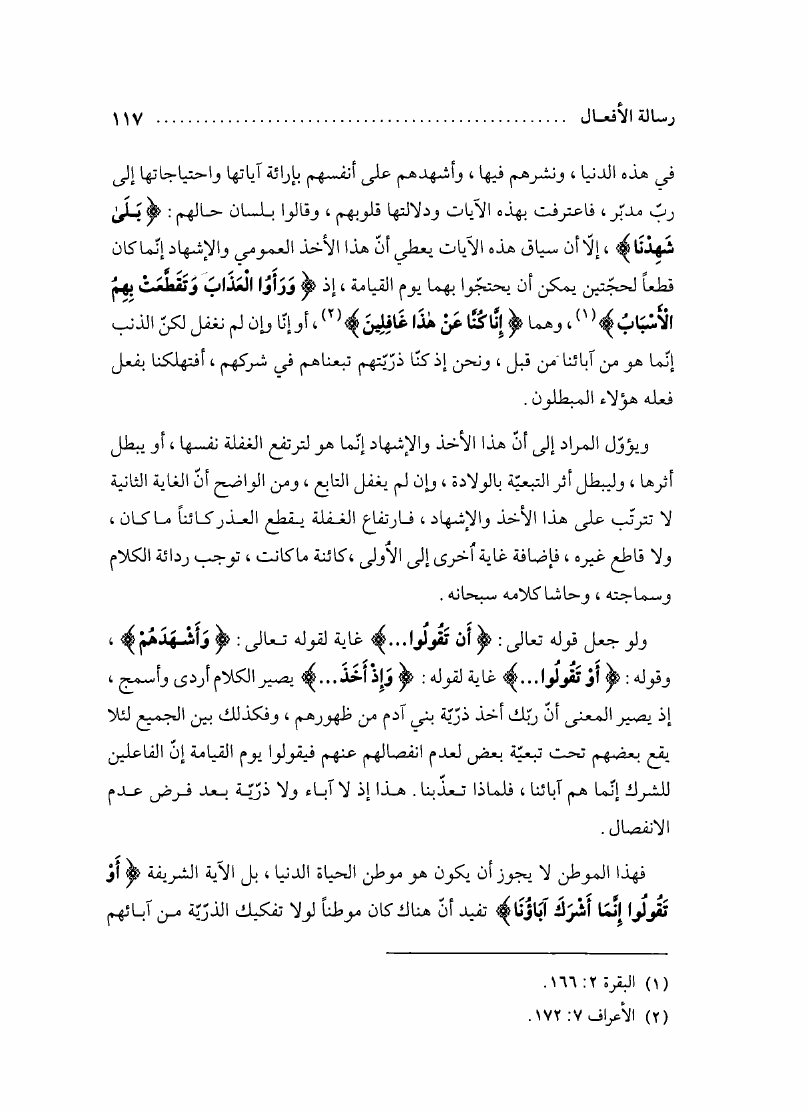 رسالة الأفعـال .................................................... ١١٧
في هذه الدنيا ، ونشرهم فيها ، وأشهدهم على أنفسهم بإرائة آياتها واحتياجاتها إلى
ربّ مدبّر ، فاعترفت بهذه الآيات ودلالتها قلوبهم ، وقالوا بلسان حالهم : ﴿ بَلَىٰ
شَهِدْنَا ﴾ ، إلّا أن سياق هذه الآيات يعطي أنّ هذا الأخذ العمومي والإشهاد إنّما كان
قطعاً لحجّتين يمكن أن يحتجّوا بهما يوم القيامة ، إذ ﴿ وَرَأَوُا الْعَذَابَ وَتَقَطَّعَتْ بِهِمُ
الْأَسْبَابُ ﴾(١) ، وهما ﴿ إِنَّا كُنَّا عَنْ هٰذَا غَافِلِينَ ﴾(٢) ، أو إنّا وإن لم نغفل لكنّ الذنب
إنّما هو من آبائنا من قبل ، ونحن إذ كنّا ذرّيّتهم تبعناهم في شركهم ، أفتهلكنا بفعل
فعله هؤلاء المبطلون .
ويؤوّل المراد إلى أنّ هذا الأخذ والإشهاد إنّما هو لترتفع الغفلة نفسها ، أو يبطل
أثرها ، وليبطل أثر التبعيّة بالولادة ، وإن لم يغفل التابع ، ومن الواضح أنّ الغاية الثانية
لا تترتّب على هذا الأخذ والإشهاد ، فارتفاع الغفلة يقطع العذر كائناً ما كان ،
ولا قاطع غيره ، فإضافة غاية أُخرى إلى الأُولى ، كائنة ما كانت ، توجب ردائة الكلام
وسماجته ، وحاشا كلامه سبحانه .
ولو جعل قوله تعالى : ﴿ أَن تَقُولُوا... ﴾ غاية لقوله تعالى : ﴿ وَأَشْهَدَهُمْ ﴾ ،
وقوله : ﴿ أَوْ تَقُولُوا... ﴾ غاية لقوله : ﴿ وَإِذْ أَخَذَ... ﴾ يصير الكلام أردى وأسمج ،
إذ يصير المعنى أنّ ربّك أخذ ذرّيّة بني آدم من ظهورهم ، وفكذلك بين الجميع لئلا
يقع بعضهم تحت تبعيّة بعض لعدم انفصالهم عنهم فيقولوا يوم القيامة إنّ الفاعلين
للشرك إنّما هم آبائنا ، فلماذا تعذّبنا . هذا إذ لا آباء ولا ذرّيّة بعد فرض عدم
الانفصال .
فهذا الموطن لا يجوز أن يكون هو موطن الحياة الدنيا ، بل الآية الشريفة ﴿ أَوْ
تَقُولُوا إِنَّمَا أَشْرَكَ آبَاؤُنَا ﴾ تفيد أنّ هناك كان موطناً لولا تفكيك الذرّيّة من آبائهم
(١) البقرة ٢: ١٦٦.
(٢) الأعراف ٧: ١٧٢.